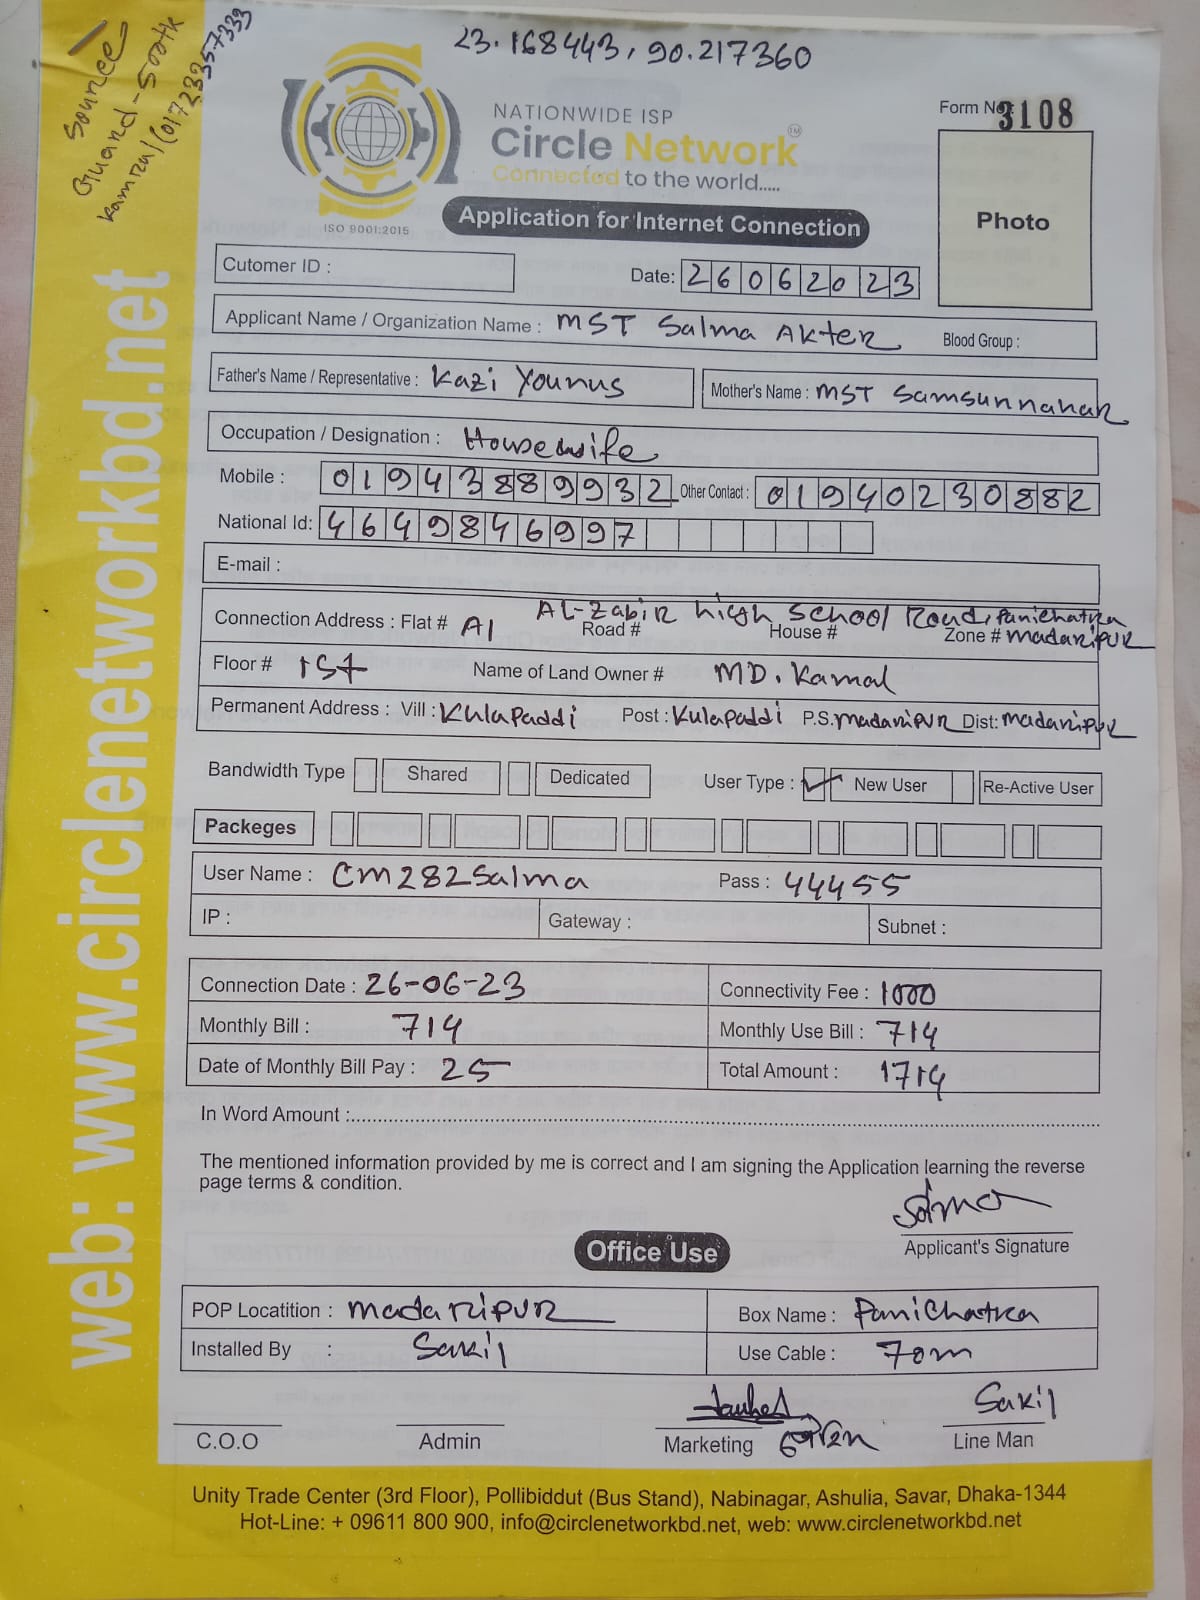 23.168443, 90.217360
Source
Guard - 500tk
Kamral (01723357333
NATIONWIDE ISP
Circle Network TM
Connected to the world.....
ISO 9001:2015
Form No: 3108
Photo
Application for Internet Connection
Cutomer ID :
Date: 26062023
Applicant Name / Organization Name : MST Salma Akter Blood Group :
Father's Name / Representative : Kazi Younus Mother's Name : MST Samsunnahar
Occupation / Designation : Housewife
Mobile : 01943889932 Other Contact : 01940230882
National Id: 4649846997
E-mail :
Connection Address : Flat # A1 Road # House # Zone # Madaripur
AL-Zabir high School Road, Panichatra
Floor # 1st Name of Land Owner # MD. Kamal
Permanent Address : Vill : Kulapaddi Post : Kulapaddi P.S. Madaripur Dist: Madaripur
Bandwidth Type Shared Dedicated User Type : ✓ New User Re-Active User
Packeges
User Name : CM282Salma Pass : 44455
IP : Gateway : Subnet :
Connection Date : 26-06-23 Connectivity Fee : 1000
Monthly Bill : 714 Monthly Use Bill : 714
Date of Monthly Bill Pay : 25 Total Amount : 1714
In Word Amount :
The mentioned information provided by me is correct and I am signing the Application learning the reverse
page terms & condition.
Salma
Applicant's Signature
Office Use
POP Locatition : Madaripur Box Name : Panichatra
Installed By : Sakil Use Cable : 70m
Sakil
C.O.O Admin Marketing Line Man
Unity Trade Center (3rd Floor), Pollibiddut (Bus Stand), Nabinagar, Ashulia, Savar, Dhaka-1344
Hot-Line: + 09611 800 900, info@circlenetworkbd.net, web: www.circlenetworkbd.net
web: www.circlenetworkbd.net